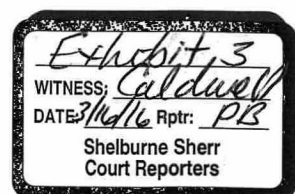 Exhibit 3
WITNESS: Caldwell
DATE: 3/16/16 Rptr: PB
Shelburne Sherr
Court Reporters